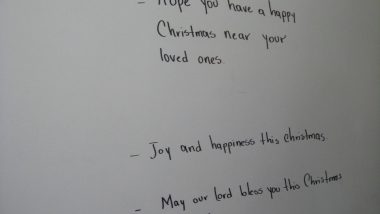 - Hope you have a happy
Christmas near your
loved ones.
- Joy and happiness this christmas.
- May our lord bless you this Christmas